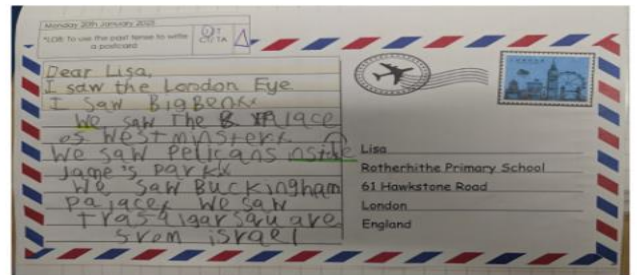 Monday 20th January 2025
*LO8: To use the past tense to write
a postcard
Dear Lisa,
I saw the London Eye
I saw BigBen
We saw The Palace
os Westminster
We saw Pelicans inside
Jame's park
We saw Buckingham
palace, We saw
Trasalgar squ are
srom israel
LONDON
Lisa
Rotherhithe Primary School
61 Hawkstone Road
London
England